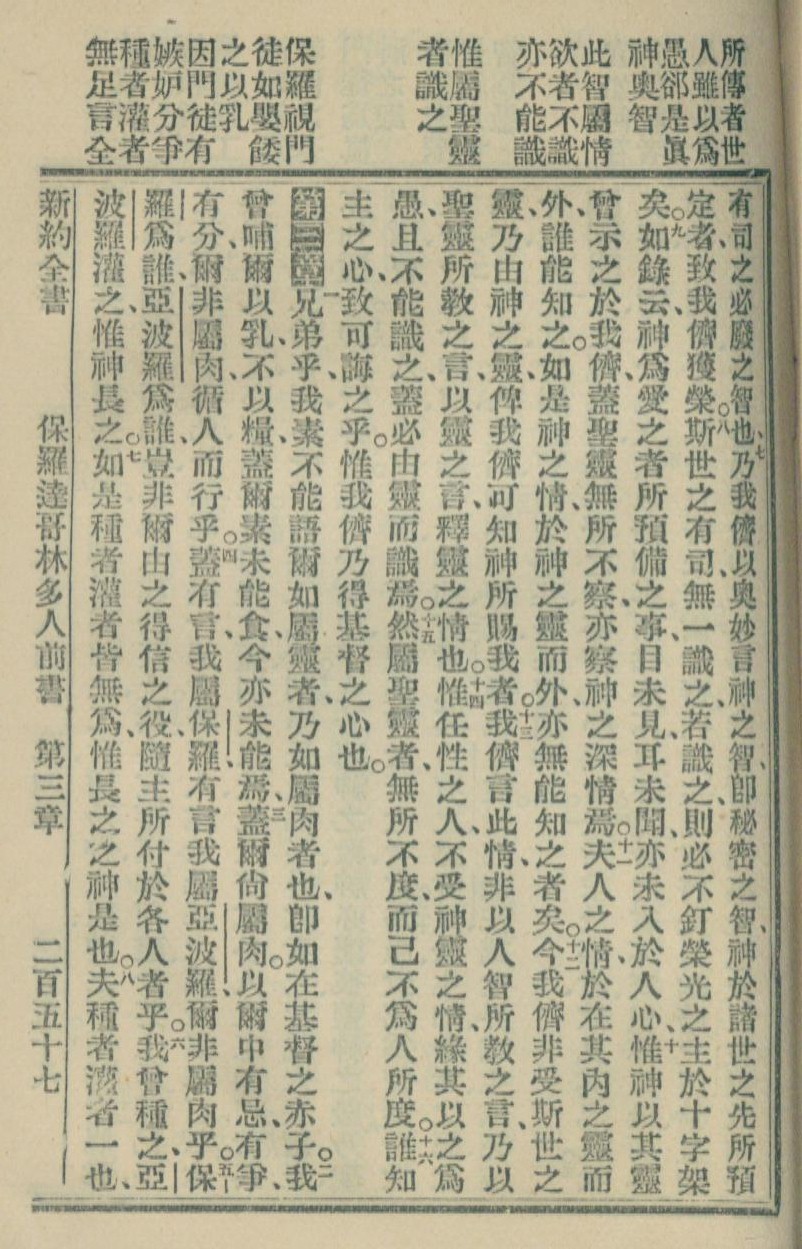 所傳者世
人雖以爲
愚郤是眞
神奧智
此智屬情
欲者不識
亦不能識
惟屬聖靈
者識之
保羅視門
徒如嬰餧
之以乳
因門徒有
嫉妒分爭
種者灌者
無足言全
有司之必廢之智也、七乃我儕以奧妙言神之智、卽秘密之智、神於諸世之先所預
定者、致我儕獲榮。八斯世之有司、無一識之、若識之、則必不釘榮光之主於十字架
矣。九如錄云、神爲愛之者所預備之事、目未見、耳未聞、亦未入於人心、十惟神以其靈
曾示之於我儕、蓋聖靈無所不察、亦察神之深情焉。十一夫人之情、於在其內之靈而
外、誰能知之。如是神之情、於神之靈而外、亦無能知之者矣。十二今我儕非受斯世之
靈、乃由神之靈、俾我儕可知神所賜我者。十三我儕言此情、非以人智所教之言、乃以
聖靈所教之言、以靈之言、釋靈之情也。十四惟任性之人、不受神靈之情、緣其以之爲
愚、且不能識之、蓋必由靈而識焉。十五然屬聖靈者、無所不度、而己不爲人所度。十六誰知
主之心、致可誨之乎。惟我儕乃得基督之心也。
第三章一兄弟乎、我素不能語爾如屬靈者、乃如屬肉者也、卽如在基督之赤子。二我
曾哺爾以乳、不以糧、蓋爾素未能食、今亦未能焉、三蓋爾尙屬肉。以爾中有忌、有爭、
有分、爾非屬肉、循人而行乎。四蓋有言、我屬保羅、有言我屬亞波羅、爾非屬肉乎。五保
羅爲誰、亞波羅爲誰、豈非爾由之得信之役、隨主所付於各人者乎。六我曾種之、亞
波羅灌之、惟神長之。七如是種者灌者皆無爲、惟長之之神是也。八夫種者灌者一也、
新約全書　保羅達哥林多人前書　第三章　二百五十七